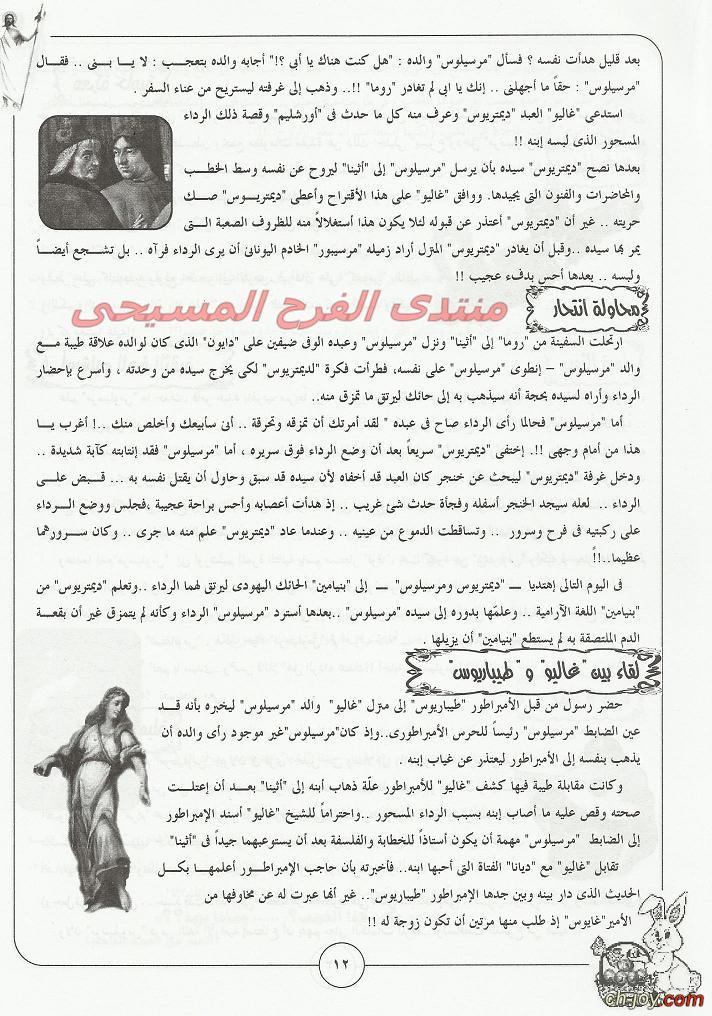 بعد قليل هدأت نفسه ؟ فسأل "مرسيلوس" والده : "هل كنت هناك يا أبى ؟!" أجابه والده بتعجب : لا يـا بـنى .. فقـال
"مرسيلوس" : حقـاً ما أجهلنى .. إنك يا ابى لم تغادر "روما" !!.. وذهب إلى غرفته ليستريح من عناء السفر .
استدعى "غاليو" العبد "ديمتريوس" وعرف منه كل ما حدث فى "أورشليم" وقصة ذلك الرداء
المسحور الذى لبسه إبنه !!
بعدها نصح "ديمتريوس" سيده بأن يرسل "مرسيلوس" إلى "أثينا" ليروح عن نفسه وسط الخطـب
والمحاضرات والفنون التى يجيدها. ووافق "غاليو" على هذا الأقتراح وأعطى "ديمتريـوس" صـك
حريته .. غير أن "ديمتريوس" أعتذر عن قبوله لئلا يكون هذا أستغلالاً منه للظروف الصعبة الـتى
يمر بها سيده ..وقبل أن يغادر "ديمتريوس" المنزل أراد زميله "مرسيبور" الخادم اليونانى أن يرى الرداء فرآه .. بل تشـجع أيضـاً
ولبسه .. بعدها أحس بدفء عجيب !!
منتدى الفرح المسيحى
محاولة انتحار
ارتحلت السفينة من "روما" إلى "أثينا" ونزل "مرسيلوس" وعبده الوفى ضيفين على "دايون" الذى كان لوالده علاقة طيبة مـع
والد "مرسيلوس" – إنطوى "مرسيلوس" على نفسه، فطرأت فكرة "لديمتريوس" لكى يخرج سيده من وحدته ، وأسرع بإحضار
الرداء وأراه لسيده بحجة أنه سيذهب به إلى حائك ليرتق ما تمزق منه..
أما "مرسيلوس" فحالما رأى الرداء صاح فى عبده " لقد أمرتك أن تمزقه وتحرقة .. أنى سأبيعك وأخلص منك ..! أغرب يـا
هذا من أمام وجهى !!. إختفى "ديمتريوس" سريعاً بعد أن وضع الرداء فوق سريره ، أما "مرسيلوس" فقد إنتابته كآبة شديدة ..
ودخل غرفة "ديمتريوس" ليبحث عن خنجر كان العبد قد أخفاه لأن سيده قد سبق وحاول أن يقتل نفسه به ... قبـض علـى
الرداء .. لعله سيجد الخنجر أسفله وفجأة حدث شئ غريب .. إذ هدأت أعصابه وأحس براحة عجيبة ،فجلس ووضع الـرداء
على ركبتيه فى فرح وسرور .. وتساقطت الدموع من عينيه .. وعندما عاد "ديمتريوس" علم منه ما جرى .. وكان سـرورهما
عظيمـا..!!
فى اليوم التالى إهتديا — "ديمتريوس ومرسيلوس" — إلى "بنيامين" الحائك اليهودى ليرتق لهما الرداء ..وتعلم "ديمتريوس" من
"بنيامين" اللغة الآرامية .. وعلمّها بدوره إلى سيده "مرسيلوس" ..بعدها أسترد "مرسيلوس" الرداء وكأنه لم يتمزق غير أن بقعـة
الدم الملتصقة به لم يستطع "بنيامين" أن يزيلها .
لقاء بين "غاليو" و "طيباريوس"
حضر رسول من قبل الأمبراطور "طيباريوس" إلى منزل "غاليو" والد "مرسيلوس" ليخبره بأنه قـد
عين الضابط "مرسيلوس" رئيساً للحرس الأمبراطورى..وإذ كان"مرسيلوس"غير موجود رأى والده أن
يذهب بنفسه إلى الأمبراطور ليعتذر عن غياب إبنه .
وكانت مقابلة طيبة فيها كشف "غاليو" للأمبراطور علّة ذهاب أبنه إلى "أثينا" بعـد أن إعتلـت
صحته وقص عليه ما أصاب إبنه بسبب الرداء المسحور ..واحتراماً للشيخ "غاليو" أسند الإمبراطور
إلى الضابط "مرسيلوس" مهمة أن يكون أستاذاً للخطابة والفلسفة بعد أن يستوعبهما جيداً فى "أثينا"
تقابل "غاليو" مع "ديانا" الفتاة التى أحبها ابنه.. فأخبرته بأن حاجب الإمبراطـور أعلمهـا بكـل
الحديث الذى دار بينه وبين جدها الإمبراطور "طيباريوس".. غير أنها عبرت له عن مخاوفها من
الأمير"غايوس" إذ طلب منها مرتين أن تكون زوجة له !!
١٢
ch-joy.com